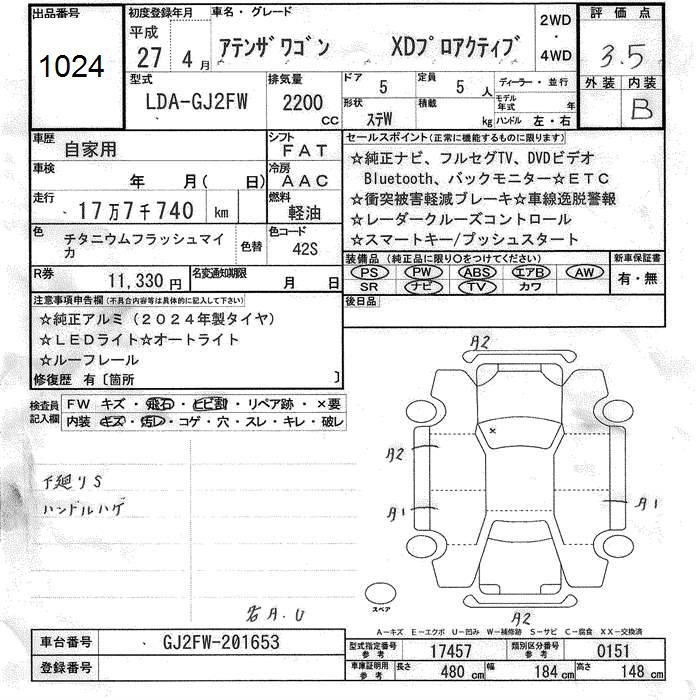 出品番号 初度登録年月 車名・グレード 評価点
1024
平成 27年 4月 アテンザワゴン XDプロアクティブ 2WD・4WD 3.5
外装 内装 B
型式 排気量 ドア 5 定員 5人 ディーラー・並行
LDA-GJ2FW 2200cc 形状 ステW 積載 kg モデル年式 年
ハンドル 左・右
車歴 自家用 シフト FAT
車検 年 月( 日) 冷房 AAC
走行 17万7千740 km 燃料 軽油
色 チタニウムフラッシュマイカ 色替 色コード 42S
R券 11,330円 名変通知期限 月 日
セールスポイント(正常に機能するものに限ります)
☆純正ナビ、フルセグTV、DVDビデオ
Bluetooth、バックモニター☆ETC
☆衝突被害軽減ブレーキ☆車線逸脱警報
☆レーダークルーズコントロール
☆スマートキー/プッシュスタート
装備品(純正品に限り○をつけてください) 新車保証書
PS PW ABS エアB AW 有・無
SR ナビ TV カワ
後日品
注意事項申告欄(不具合内容等は具体的に記入して下さい)
☆純正アルミ(2024年製タイヤ)
☆LEDライト☆オートライト
☆ルーフレール
修復歴 有〔箇所 〕
検査員記入欄 FW キズ・飛石・ヒビ割・リペア跡・×要
内装 キズ・汚レ・コゲ・穴・スレ・キレ・破レ
下廻りS
ハンドルハゲ
A2
×
A2
A1
A1
スペア
A2
右A.U
A-キズ E-エクボ U-凹み W-補修跡 S-サビ C-腐食 XX-交換済
車台番号 GJ2FW-201653
登録番号
型式指定番号 参考 17457 類別区分番号 参考 0151
車庫証明用 参考 長さ 480cm 幅 184cm 高さ 148cm